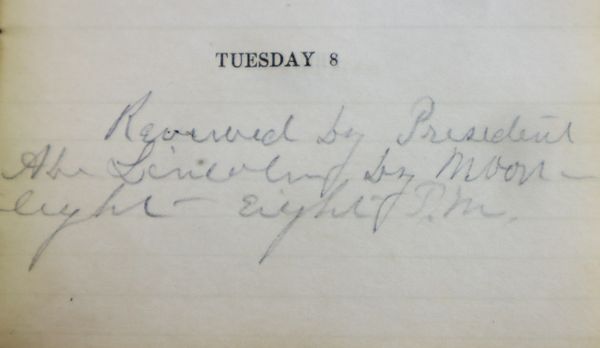 TUESDAY 8
Reviewed by President
Abe Lincoln by Moon-
light - Eight P.M.